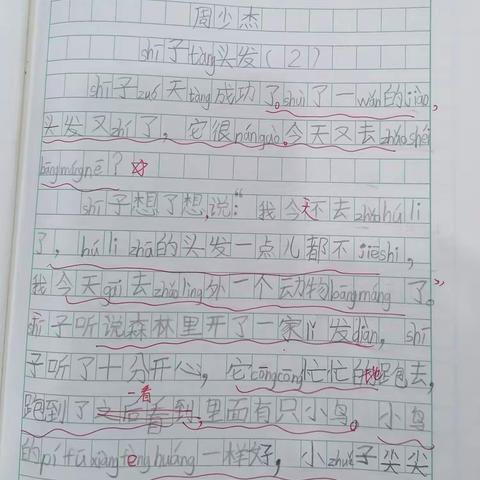 周少杰
shī子tàng头发(2)
shī子zuó天tàng成功了。shuì了一wǎn的jiào,
头发又zhí了，它很nánguò。今天又去zhǎo shéi
bāngmáng nē？
shī子想了想，说：“我今天不去zhǎo hú li
了，hú li zhā的头发一点儿都不jiēshi，
我今天gāi去zhǎo lìng外一个动物bāngmáng了。”
shī子听说森林里开了一家lǐ发diàn，shī
子听了十分开心，它cōngcōng忙忙的地跑去，
跑到了之后看到一看，里面有只小鸟。小鸟
的pí fū xiàng fèng huáng一样好，小zhuǐ子尖尖